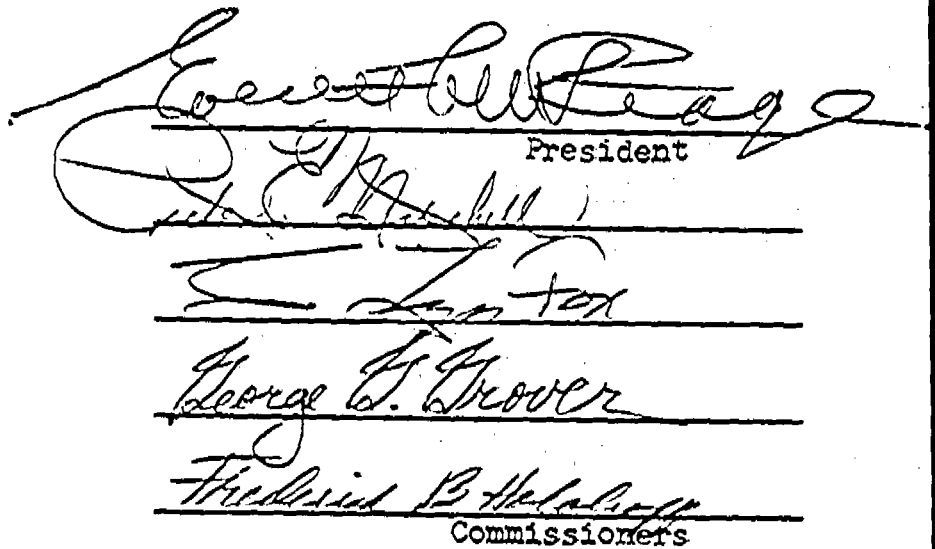 Everett C. McKeage
President
Peter E. Mitchell
C. Lyn Fox
George G. Grover
Frederick B Holoboff
Commissioners